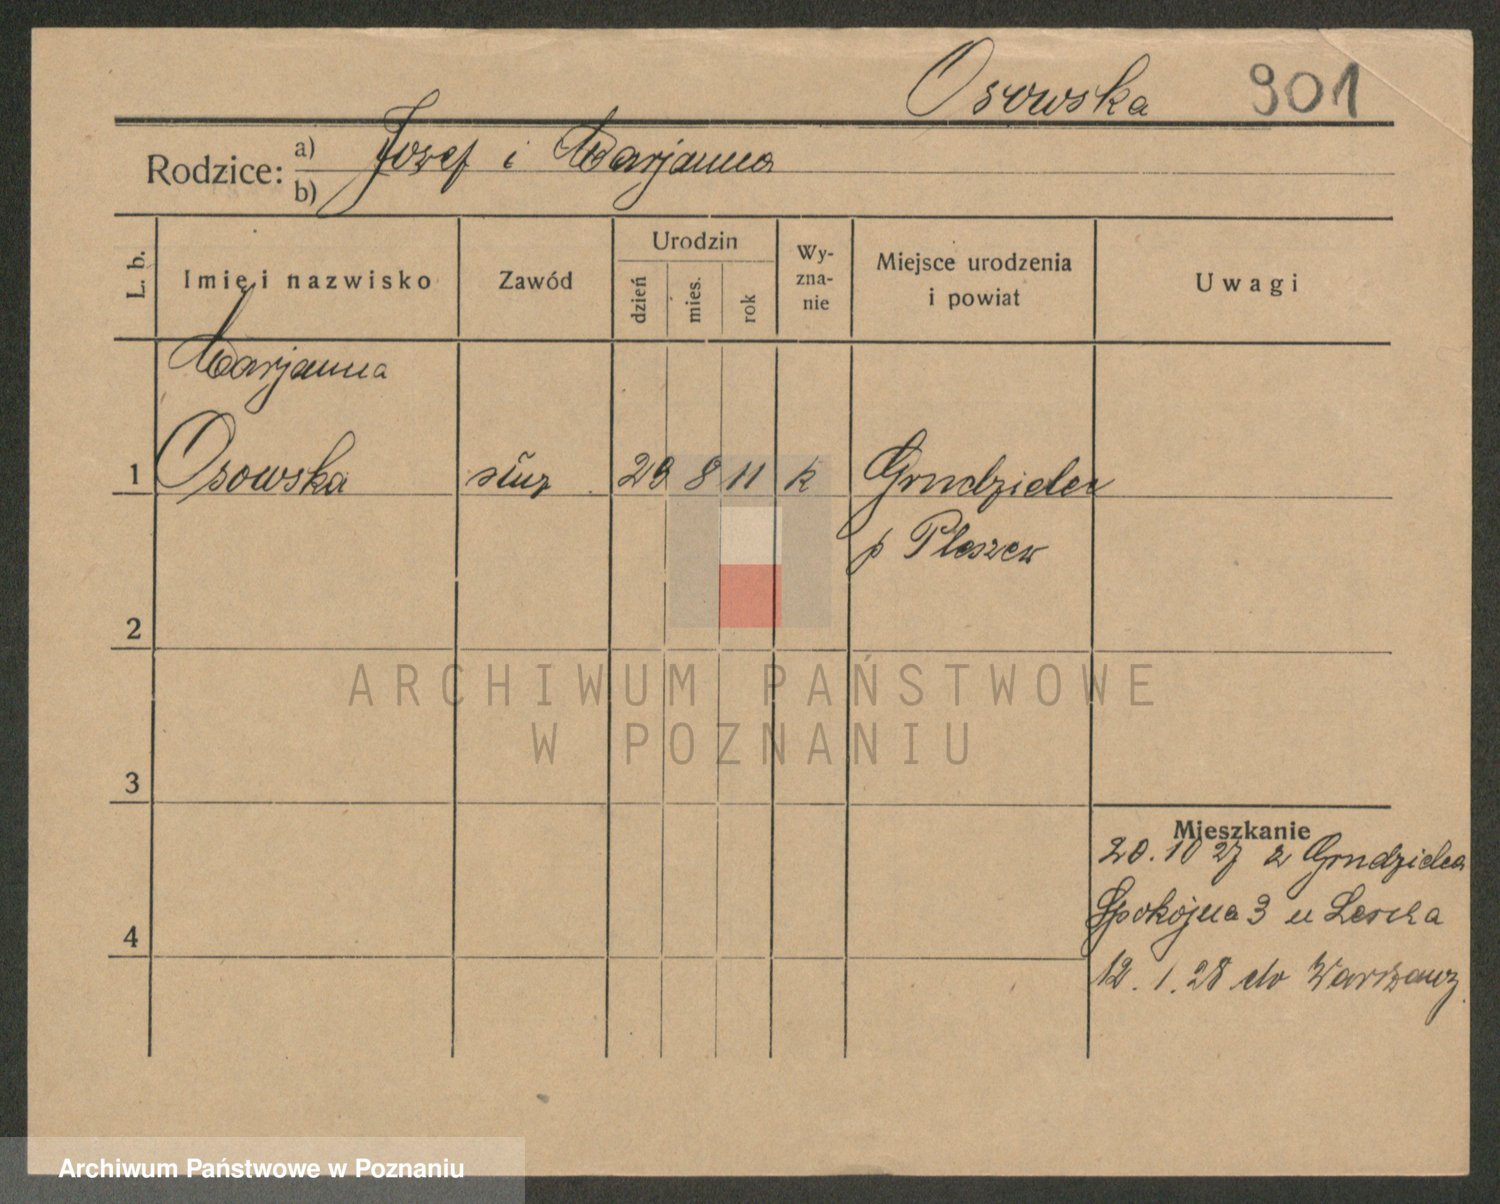 Osowska 901
Rodzice: a) b) Jozef i Marjanna
L. b. Imię i nazwisko Zawód Urodzin dzień mies. rok Wy-zna-nie Miejsce urodzenia i powiat Uwagi
Marjanna
1 Osowska służ 29 8 11 k Grudzielec
p Pleszew
2
ARCHIWUM PAŃSTWOWE
W POZNANIU
3
Mieszkanie
20. 10 27 z Grudzielca
Spokojna 3 u
4
12. 1. 28 do Warszawy
Archiwum Państwowe w Poznaniu